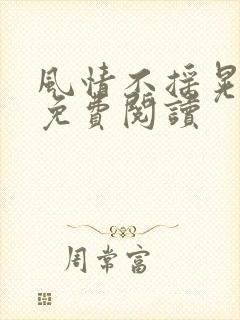 風情不搖晃
免費閱讀
周常富